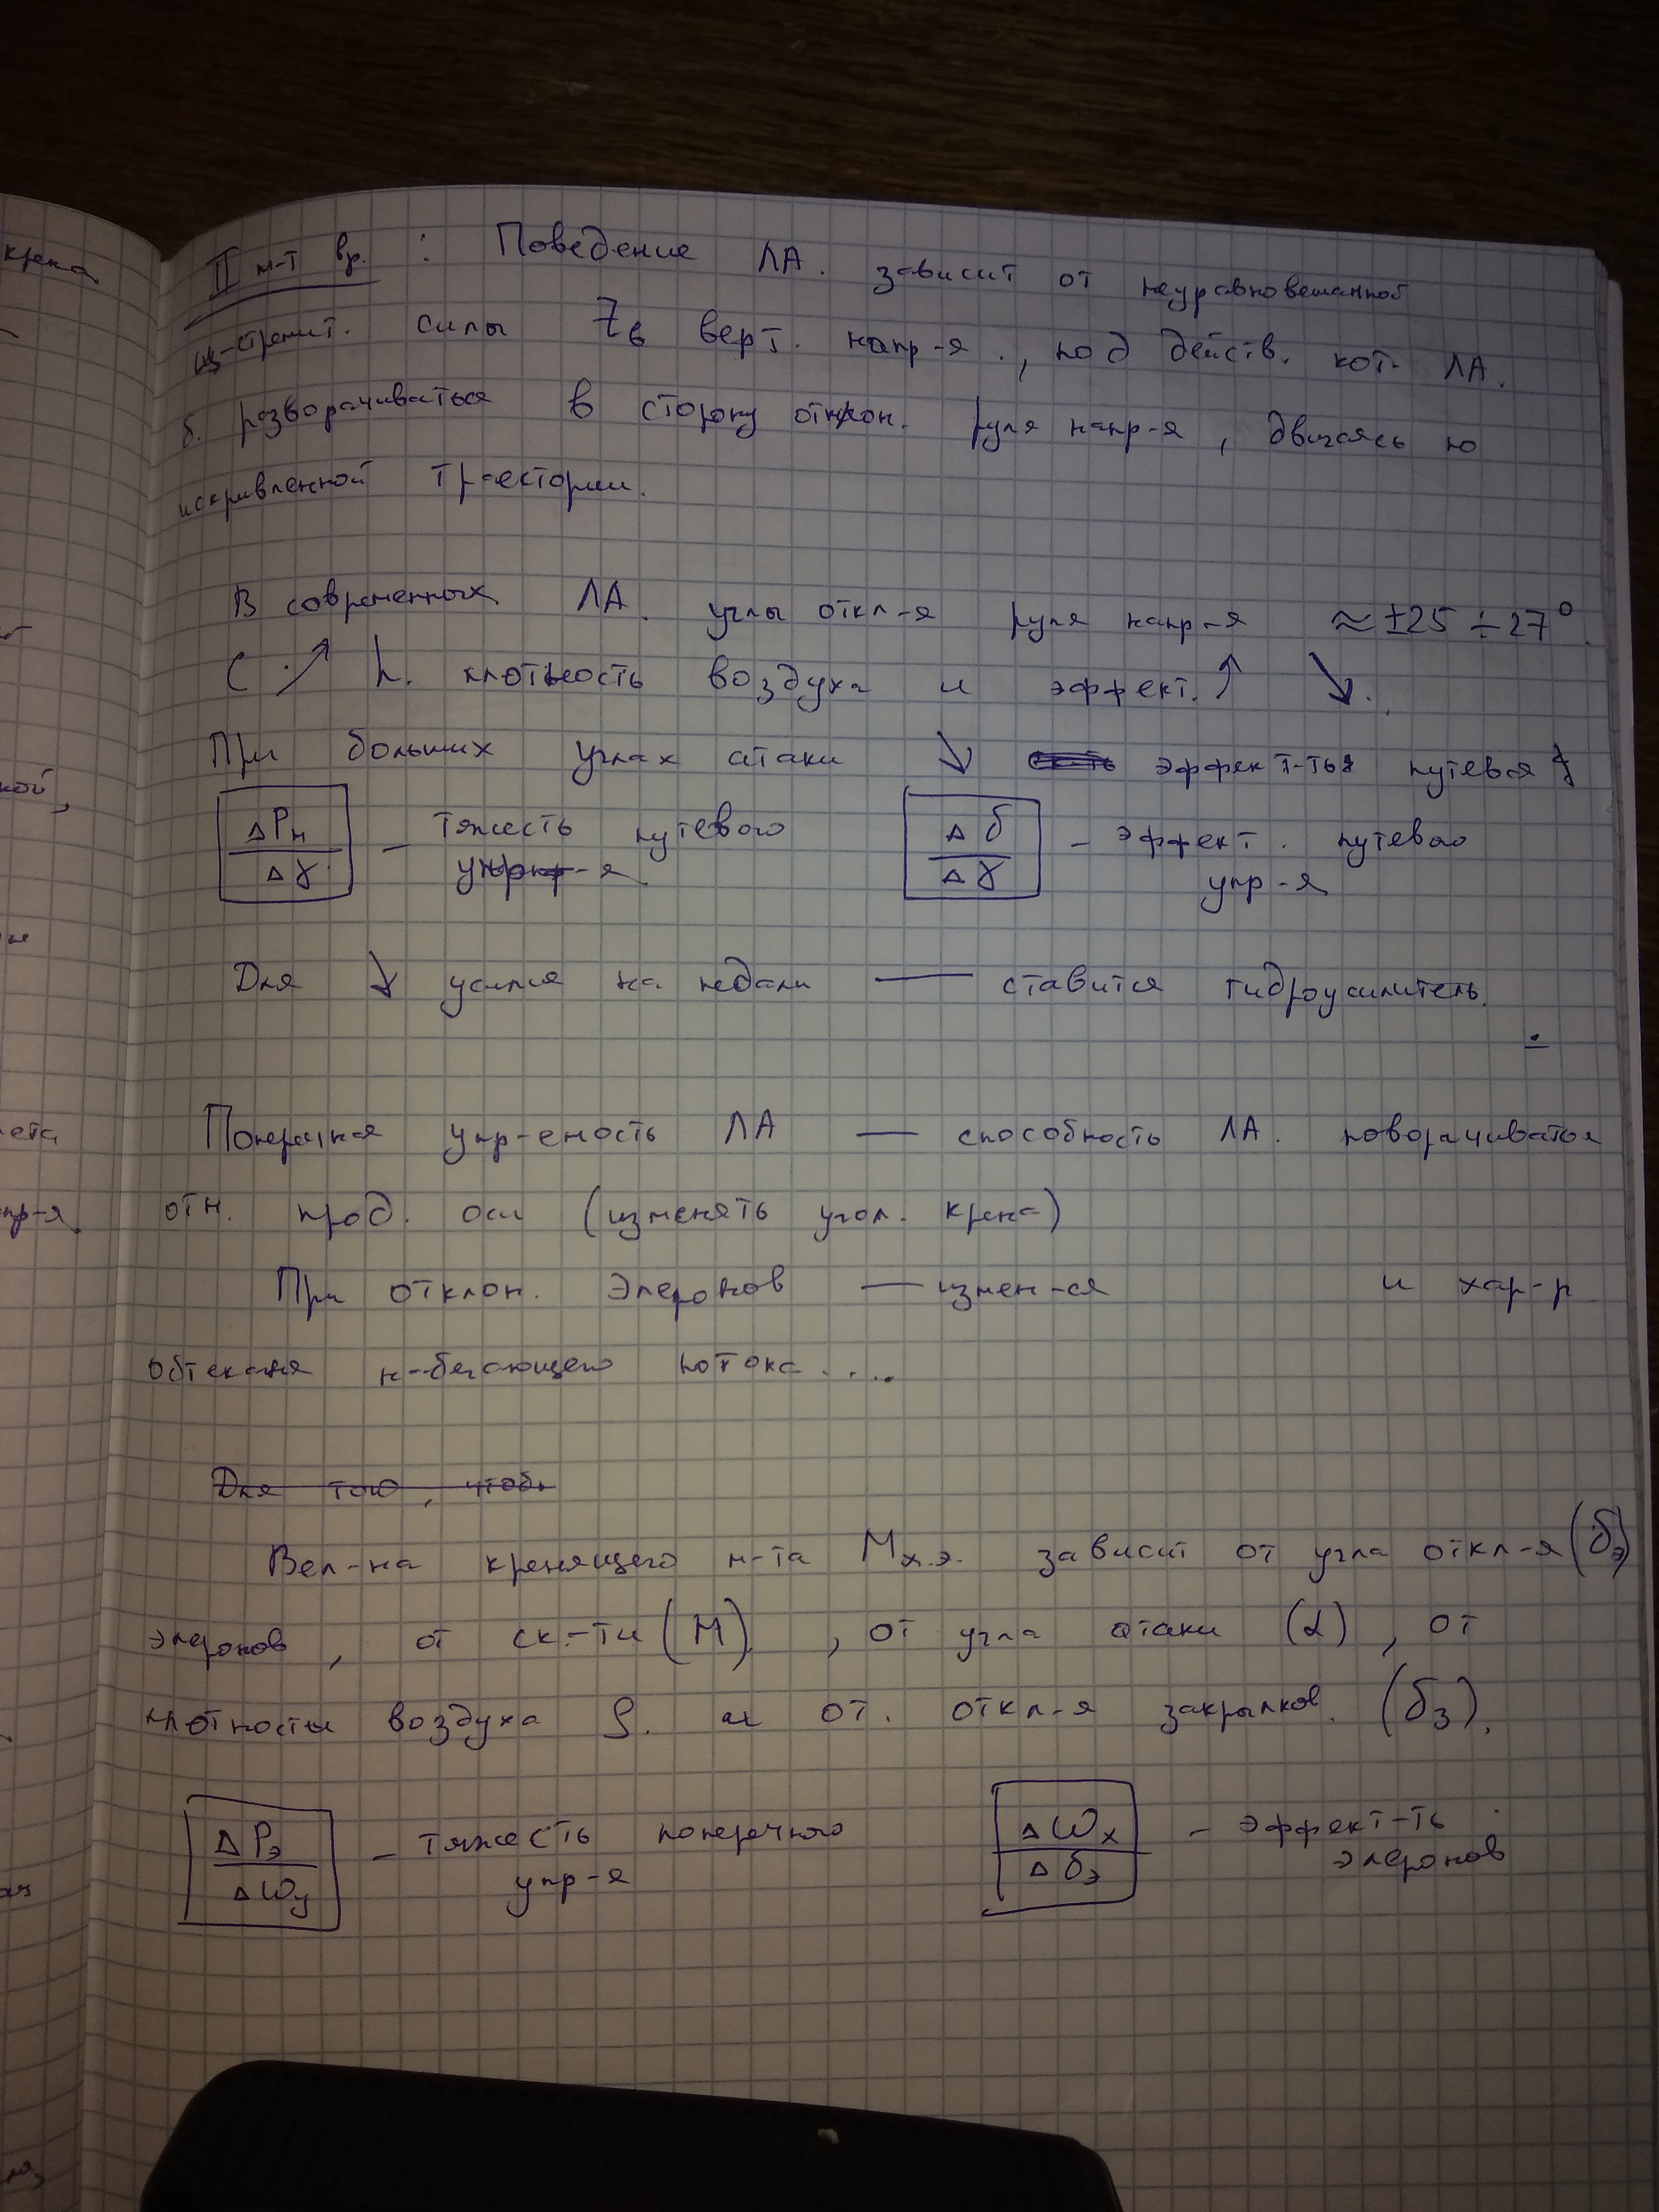 крена
II м-т вр. : Поведение ЛА. зависит от неуравновешанной
ц-стремит. силы Zв верт. напр-я., под действ. кот. ЛА.
б. разворачиваться в сторону отклон. руля напр-я, двигаясь по
искривленной траектории.
В современных ЛА. углы откл-я руля напр-я ≈ ±25 ÷ 27°.
С ↗ h. плотность воздуха и эффект. ↑ ↘.
При больших углах атаки ↘ эффект-ть путевая
ΔPн / Δγ – тяжесть путевого
упр-я
Δδ / Δγ – эффект. путевого
упр-я
Для ↓ усилия на педали — ставится гидроусилитель.
Поперечная упр-емость ЛА — способность ЛА. поворачиваться
отн. прод. оси (изменять угол. крена)
При отклон. Элеронов — измен-ся и хар-р
обтекания набегающего потока....
Для того, чтобы
Вел-на кренящего м-та Mх.э. зависит от угла откл-я (δэ)
элеронов, от ск.-ти (M), от угла атаки (α), от
плотности воздуха ρ. и от. откл-я закрылков. (δз).
ΔPэ / Δωy – тяжесть поперечного
упр-я
Δωx / Δδэ – эффект-ть
элеронов